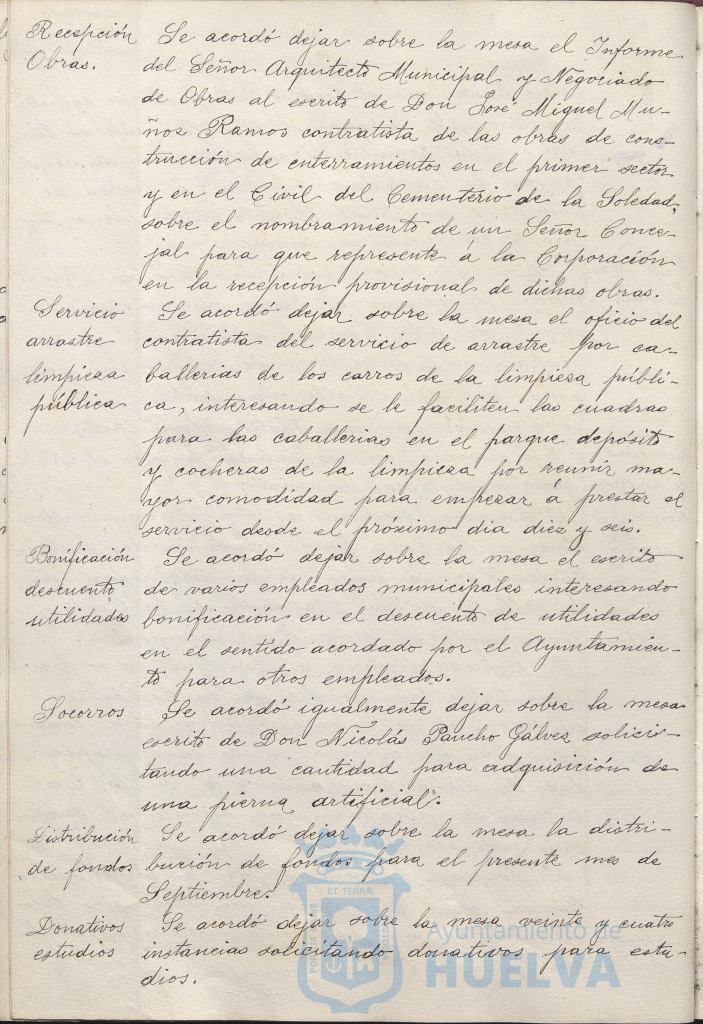 Recepción
Obras.
Se acordó dejar sobre la mesa el Informe
del Señor Arquitecto Municipal y Negociado
de Obras al escrito de Don José Miguel Mu-
ñoz Ramos contratista de las obras de cons-
trucción de enterramientos en el primer sector
y en el Civil del Cementerio de la Soledad,
sobre el nombramiento de un Señor Conce-
jal para que represente á la Corporación
en la recepción provisional de dichas obras.
Servicio
arrastre
limpieza
pública
Se acordó dejar sobre la mesa el oficio del
contratista del servicio de arrastre por ca-
ballerias de los carros de la limpieza públi-
ca, interesando se le faciliten las cuadras
para las caballerias en el parque depósito
y cocheras de la limpieza por reunir ma-
yor comodidad para empezar á prestar el
servicio desde el próximo dia diez y seis.
Bonificación
descuento
utilidades
Se acordó dejar sobre la mesa el escrito
de varios empleados municipales interesando
bonificación en el descuento de utilidades
en el sentido acordado por el Ayuntamien-
to para otros empleados.
Socorros
Se acordó igualmente dejar sobre la mesa
escrito de Don Nicolás Pancho Gálvez solici-
tando una cantidad para adquisición de
una pierna artificial.
Distribución
de fondos
Se acordó dejar sobre la mesa la distri-
bución de fondos para el presente mes de
Septiembre.
Donativos
estudios
Se acordó dejar sobre la mesa veinte y cuatro
instancias solicitando donativos para estu-
dios.
ET TERRÆ
Ayuntamiento de
HUELVA